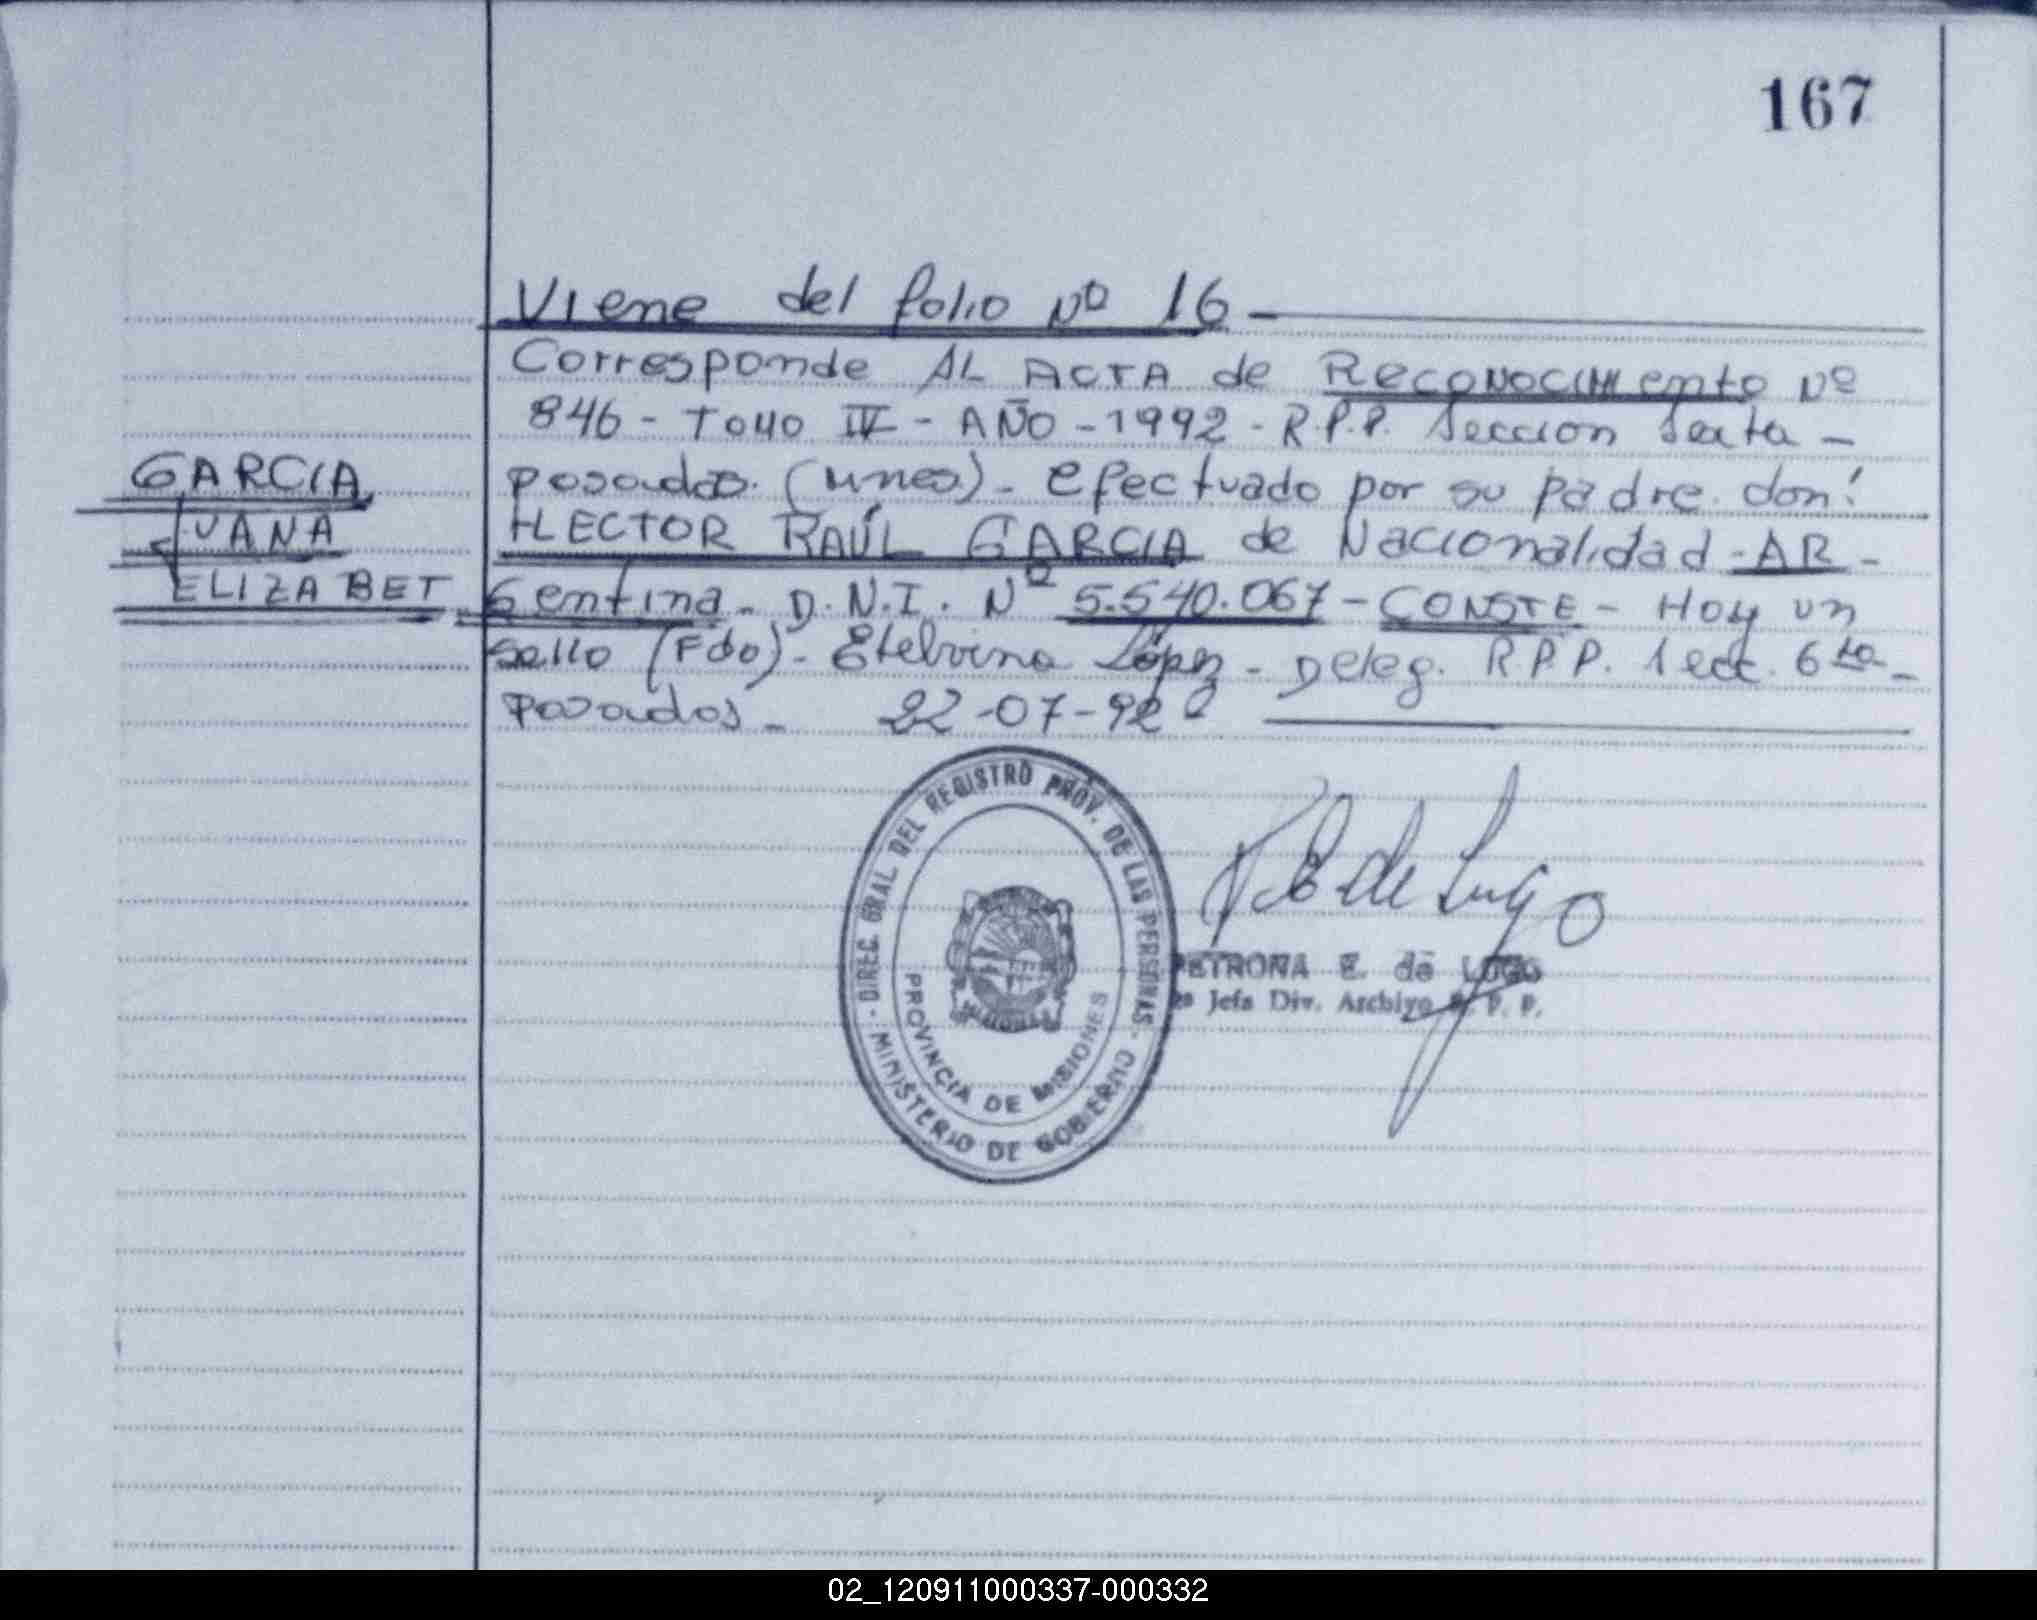 167
Viene del folio Nº 16 -
Corresponde AL ACTA de Reconocimiento Nº
846 - TOMO IV - AÑO - 1992 - R.P.P. Sección Sexta -
GARCIA
Posadas. (Mnes) - efectuado por su padre don:
IVANA
HECTOR RAÚL GARCIA de Nacionalidad - AR -
ELIZABET
Gentina - D.N.I. Nº 5.540.067 - CONSTE - Hay un
Sello (Fdo) - Etelvina López - Deleg. R.P.P. Secc. 6ta -
Posadas - 22-07-92 -
· DIREC. GRAL DEL REGISTRO PROV. DE LAS PERSONAS ·
MINISTERIO DE GOBIERNO
PROVINCIA DE MISIONES
P. E. de Lugo
PETRONA E. de LUGO
Jefa Div. Archivo R. P. P.
02_120911000337-000332